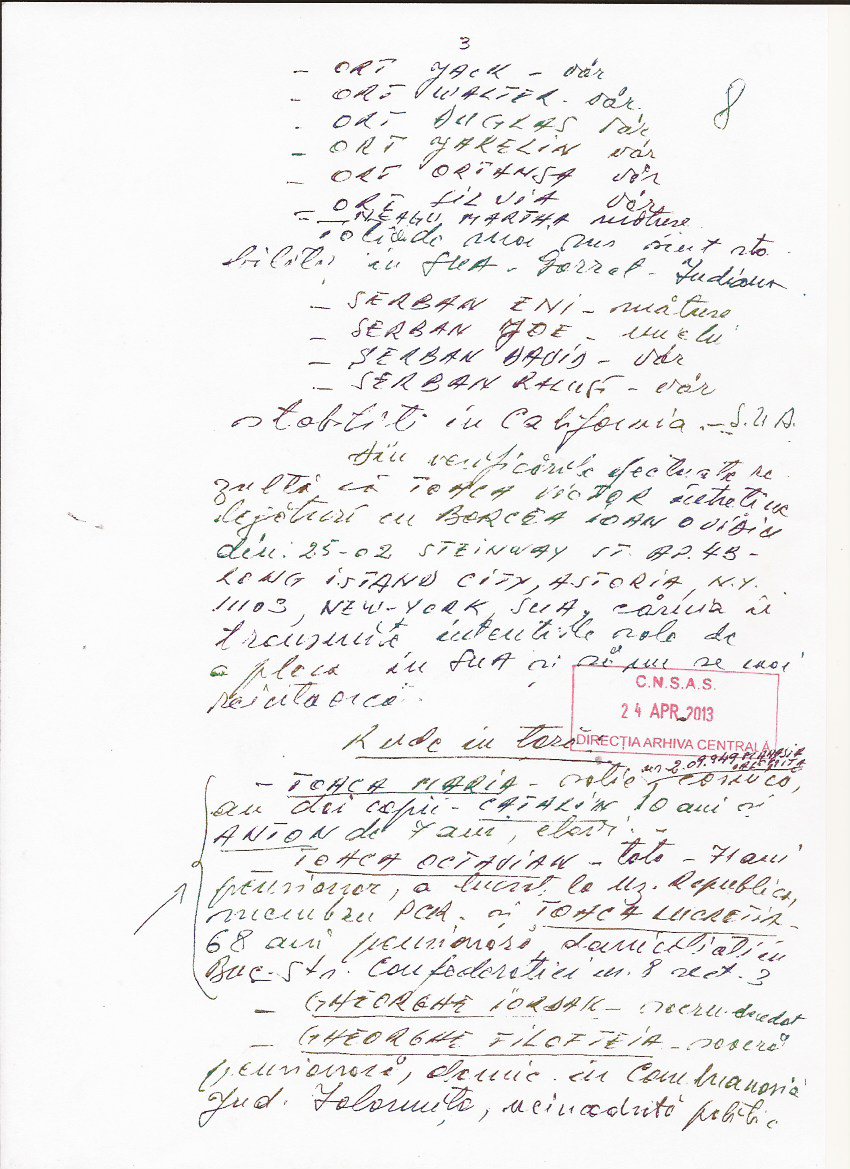 3
8
- ORT JACK - văr
- ORT WALTER - văr
- ORT DUGLAS văr
- ORT JAKELIN văr
- ORT ORTANSA văr
- ORT SILVIA văr
- NEAGU MARTHA mătușe
mai sus sînt sta
biliți în SUA - Indiana
- ȘERBAN ENI - mătușe
- ȘERBAN JOE - unchi
- ȘERBAN DAVID - văr
- ȘERBAN - văr
stabiliți în California - S.U.A.
Din verificările efectuate re
zultă că TOACA VICTOR întreține
legături cu BORCEA IOAN OVIDIU
din 25-02 STEINWAY ST. AP. 4B -
LONG ISTAND CITY, ASTORIA, N.Y.
11103, NEW-YORK, SUA, căruia îi
transmite intențiile sale de
a pleca în SUA și să nu se mai
reîntoarcă.
C.N.S.A.S.
24 APR. 2013
DIRECȚIA ARHIVA CENTRALĂ
Rude în țară
2.09.949
- TOACA MARIA - soție, casnică,
au doi copii - CATALIN 10 ani și
ANTON de 7 ani, elevi. -
TOACA OCTAVIAN - tata - 71 ani
pensionar, a lucrat la Uz. Republica,
membru PCR. și TOACA LUCREȚIA -
68 ani pensionară, domiciliați în
Buc. Str. Confederației nr. 8 sect. 3
- GHEORGHE IORDAN - socru - decedat
- GHEORGHE FILOFTEIA - soacră
pensionară, domic. în Com. Manasia
Jud. Ialomița, neîncadrată politic